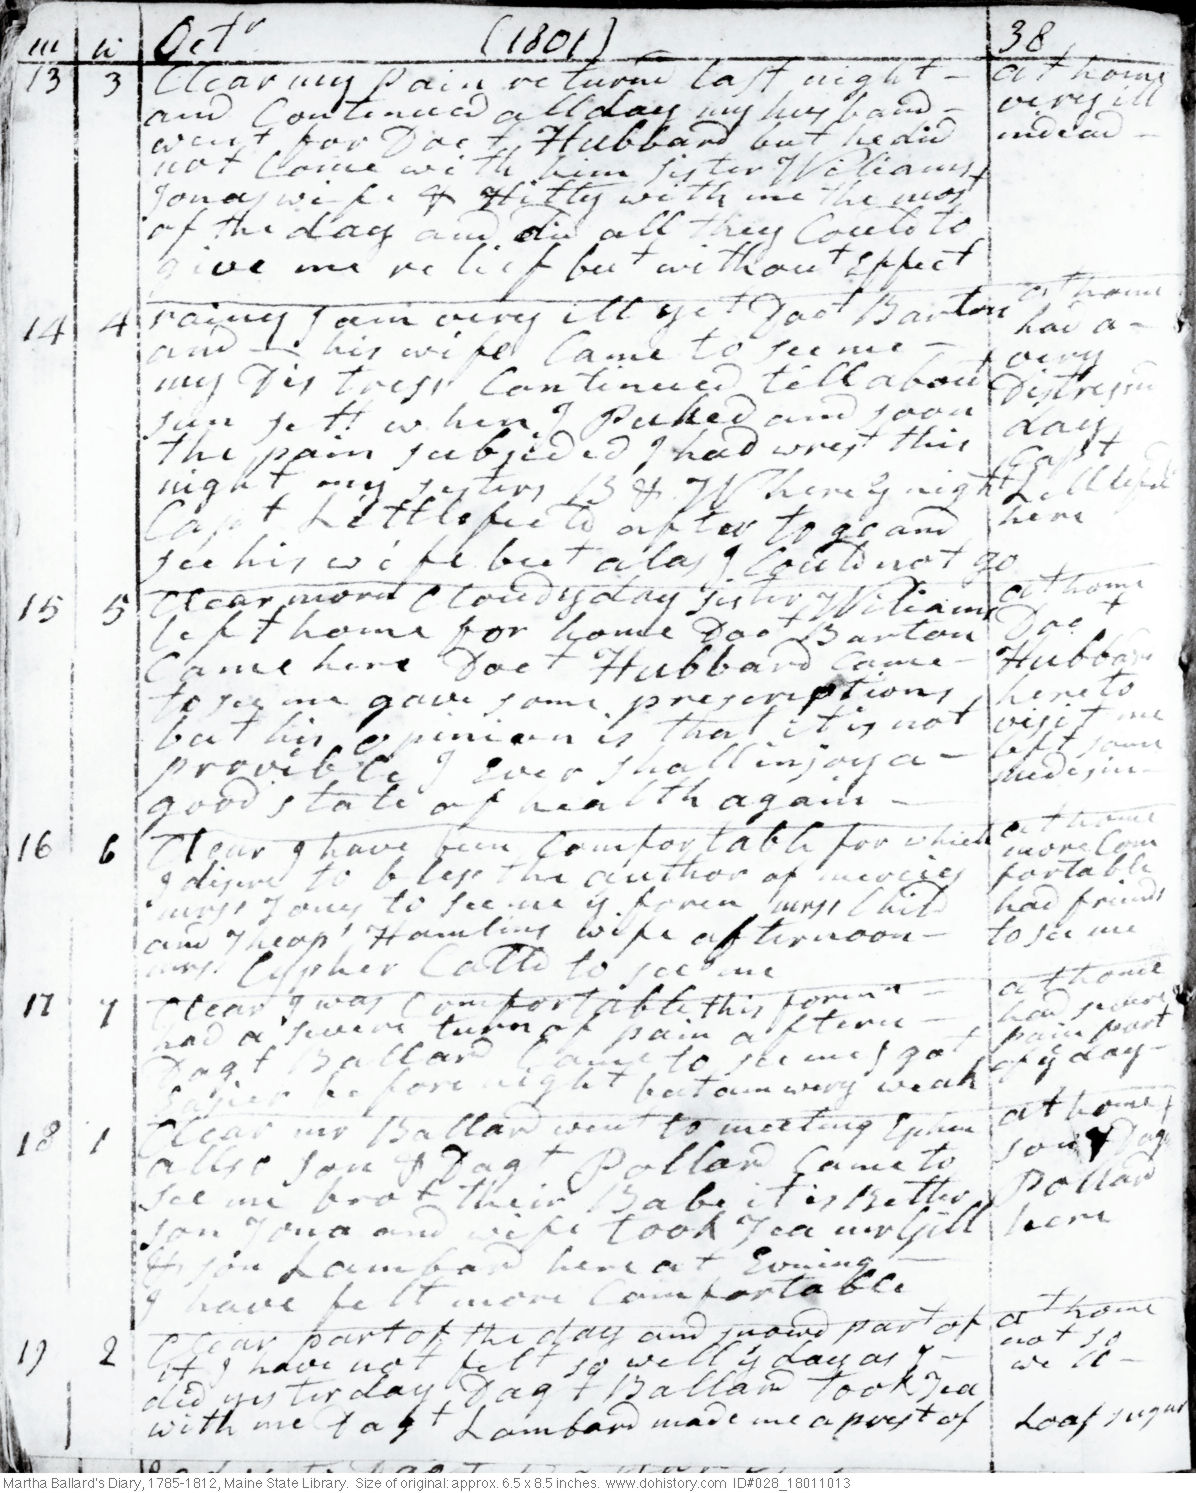 m w Octr (1801) 38
13 3 Clear my pain returnd last night - at home
and Continued all day my husband - very ill
went for Doct Hubbard but he did indead -
not Come with him sister Williams
Jonas wife & Hitty with me the most
of the day and did all they Could to
give me relief but without Effect
14 4 rainy I am very ill yet Doct Barton at home
and his wife Came to see me - had a -
my Distress Continued till about very
sun sett when I Puked and soon Distressd
the pain subsided I had wrest this day
night my sisters B & W here ys night Capt
Capt Littlefield after to go and Littlefield
see his wife but alas I Could not go here
15 5 Clear morn Cloudy day sister Williams at home
left home for home Doct Barton Doct
Came here Doct Hubbard Came - Hubbard
to see me gave some prescriptions here to
but his opinion is that it is not visit me
provible I Ever shall injoy a - left some
good state of health again - medesin -
16 6 Clear I have been Comfortable for which at home
I disire to bless the author of mercies more Com
mrss Jones to see me ys foren mrss Child fortable
and Theops Hamlins wife afternoon - had friends
mrs Cypher Calld to see me to see me
17 7 Clear I was Comfortable this foren - at home
had a severe turn of pain aftern - had severe
Dagt Ballard Came to see me I got pain part
Easier before night but am very weak of ys day -
18 1 Clear mr Ballard went to meeting Ephm at home
allso son & Dagt Pollard Came to son & Dagt
see me brot their Babe it is Better Pollard
son Jona and wife took Tea mr Gill here
& son Lambard here at Evining -
I have felt more Comfortable
19 2 Clear part of the day and snowd part of at home
it I have not felt so well ys day as I - not so
did yesterday Dagt Ballard took Tea well -
with me Dagt Lambard made me a prest of Loaf sugar
Martha Ballard's Diary, 1785-1812, Maine State Library. Size of original: approx. 6.5 x 8.5 inches. www.dohistory.com ID#028_18011013